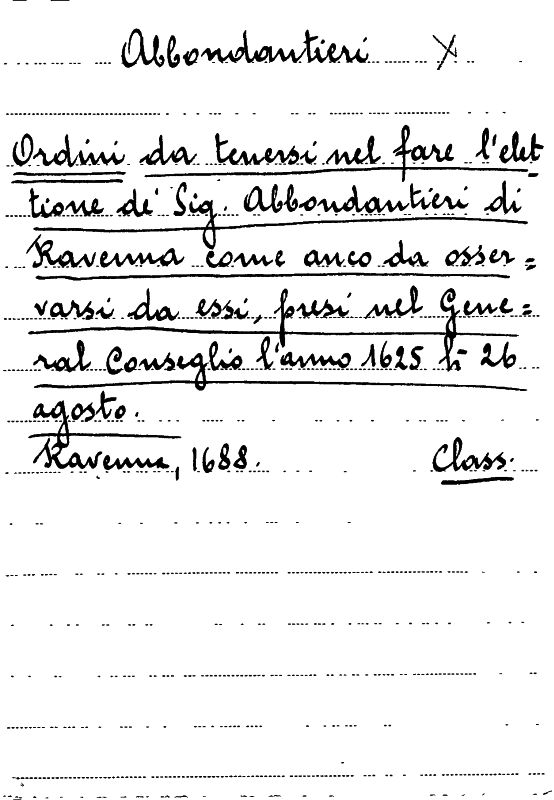 Abbondantieri X
Ordini da tenersi nel fare l'elet-
tione de' Sig. Abbondantieri di
Ravenna come anco da osser=
varsi da essi, presi nel Gene=
ral Conseglio l'anno 1625 li 26
agosto.
Ravenna, 1688. Class.